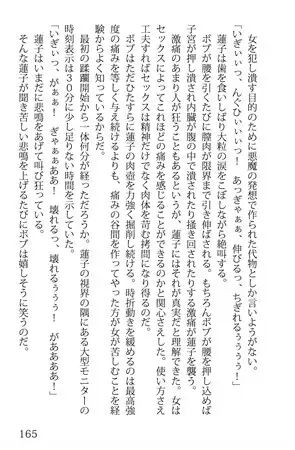 女を犯し潰す目的のために悪魔の発想で作られた代物としか言いようがない。
「いぎぃぃっ、んぐひぃぃぃっ！　あっぎゃぁぁ、伸びるっ、ちぎれるぅぅぅぅ！」
蓮子は歯を食いしばり大粒の涙をこぼしながら絶叫する。
ボブが腰を引くたびに膣肉が限界まで引き伸ばされる。もちろんボブが腰を押し込めば
子宮が押し潰され内臓が腹の中で潰されたり掻き回されたりする激痛が蓮子を襲う。
激痛のあまり人が狂うこともあるというが、蓮子にはそれが真実だと理解できた。女は
セックスによってこれほどの痛みを感じることができるのかと関心さえした。使い方さえ
工夫すればセックスは精神だけでなく肉体を苛む拷問になり得るのだ。
ボブはただひたすらに蓮子の肉壺を力強く掘削し続ける。時折動きを緩めるのは最高
度の痛みを等しく与え続けるよりも、痛みの谷間を作ってやった方が女が苦しむことを経
験からよく知っているからだ。
最初の蹂躙開始から一体何分が経っただろうか。蓮子の視界の隅にある大型モニターの
時刻表示は３０分に少し足りない時間を示していた。
「いぎぃっ、がぁぁっ！　ぎゃぁぁああっ！　壊れるっ、壊れるぅぅぅっ！　がああああ！」
蓮子はいまだに悲鳴をあげて叫び狂っている。
そんな蓮子が聞き苦しい悲鳴を上げるたびにボブは嬉しそうに笑うのだ。
165